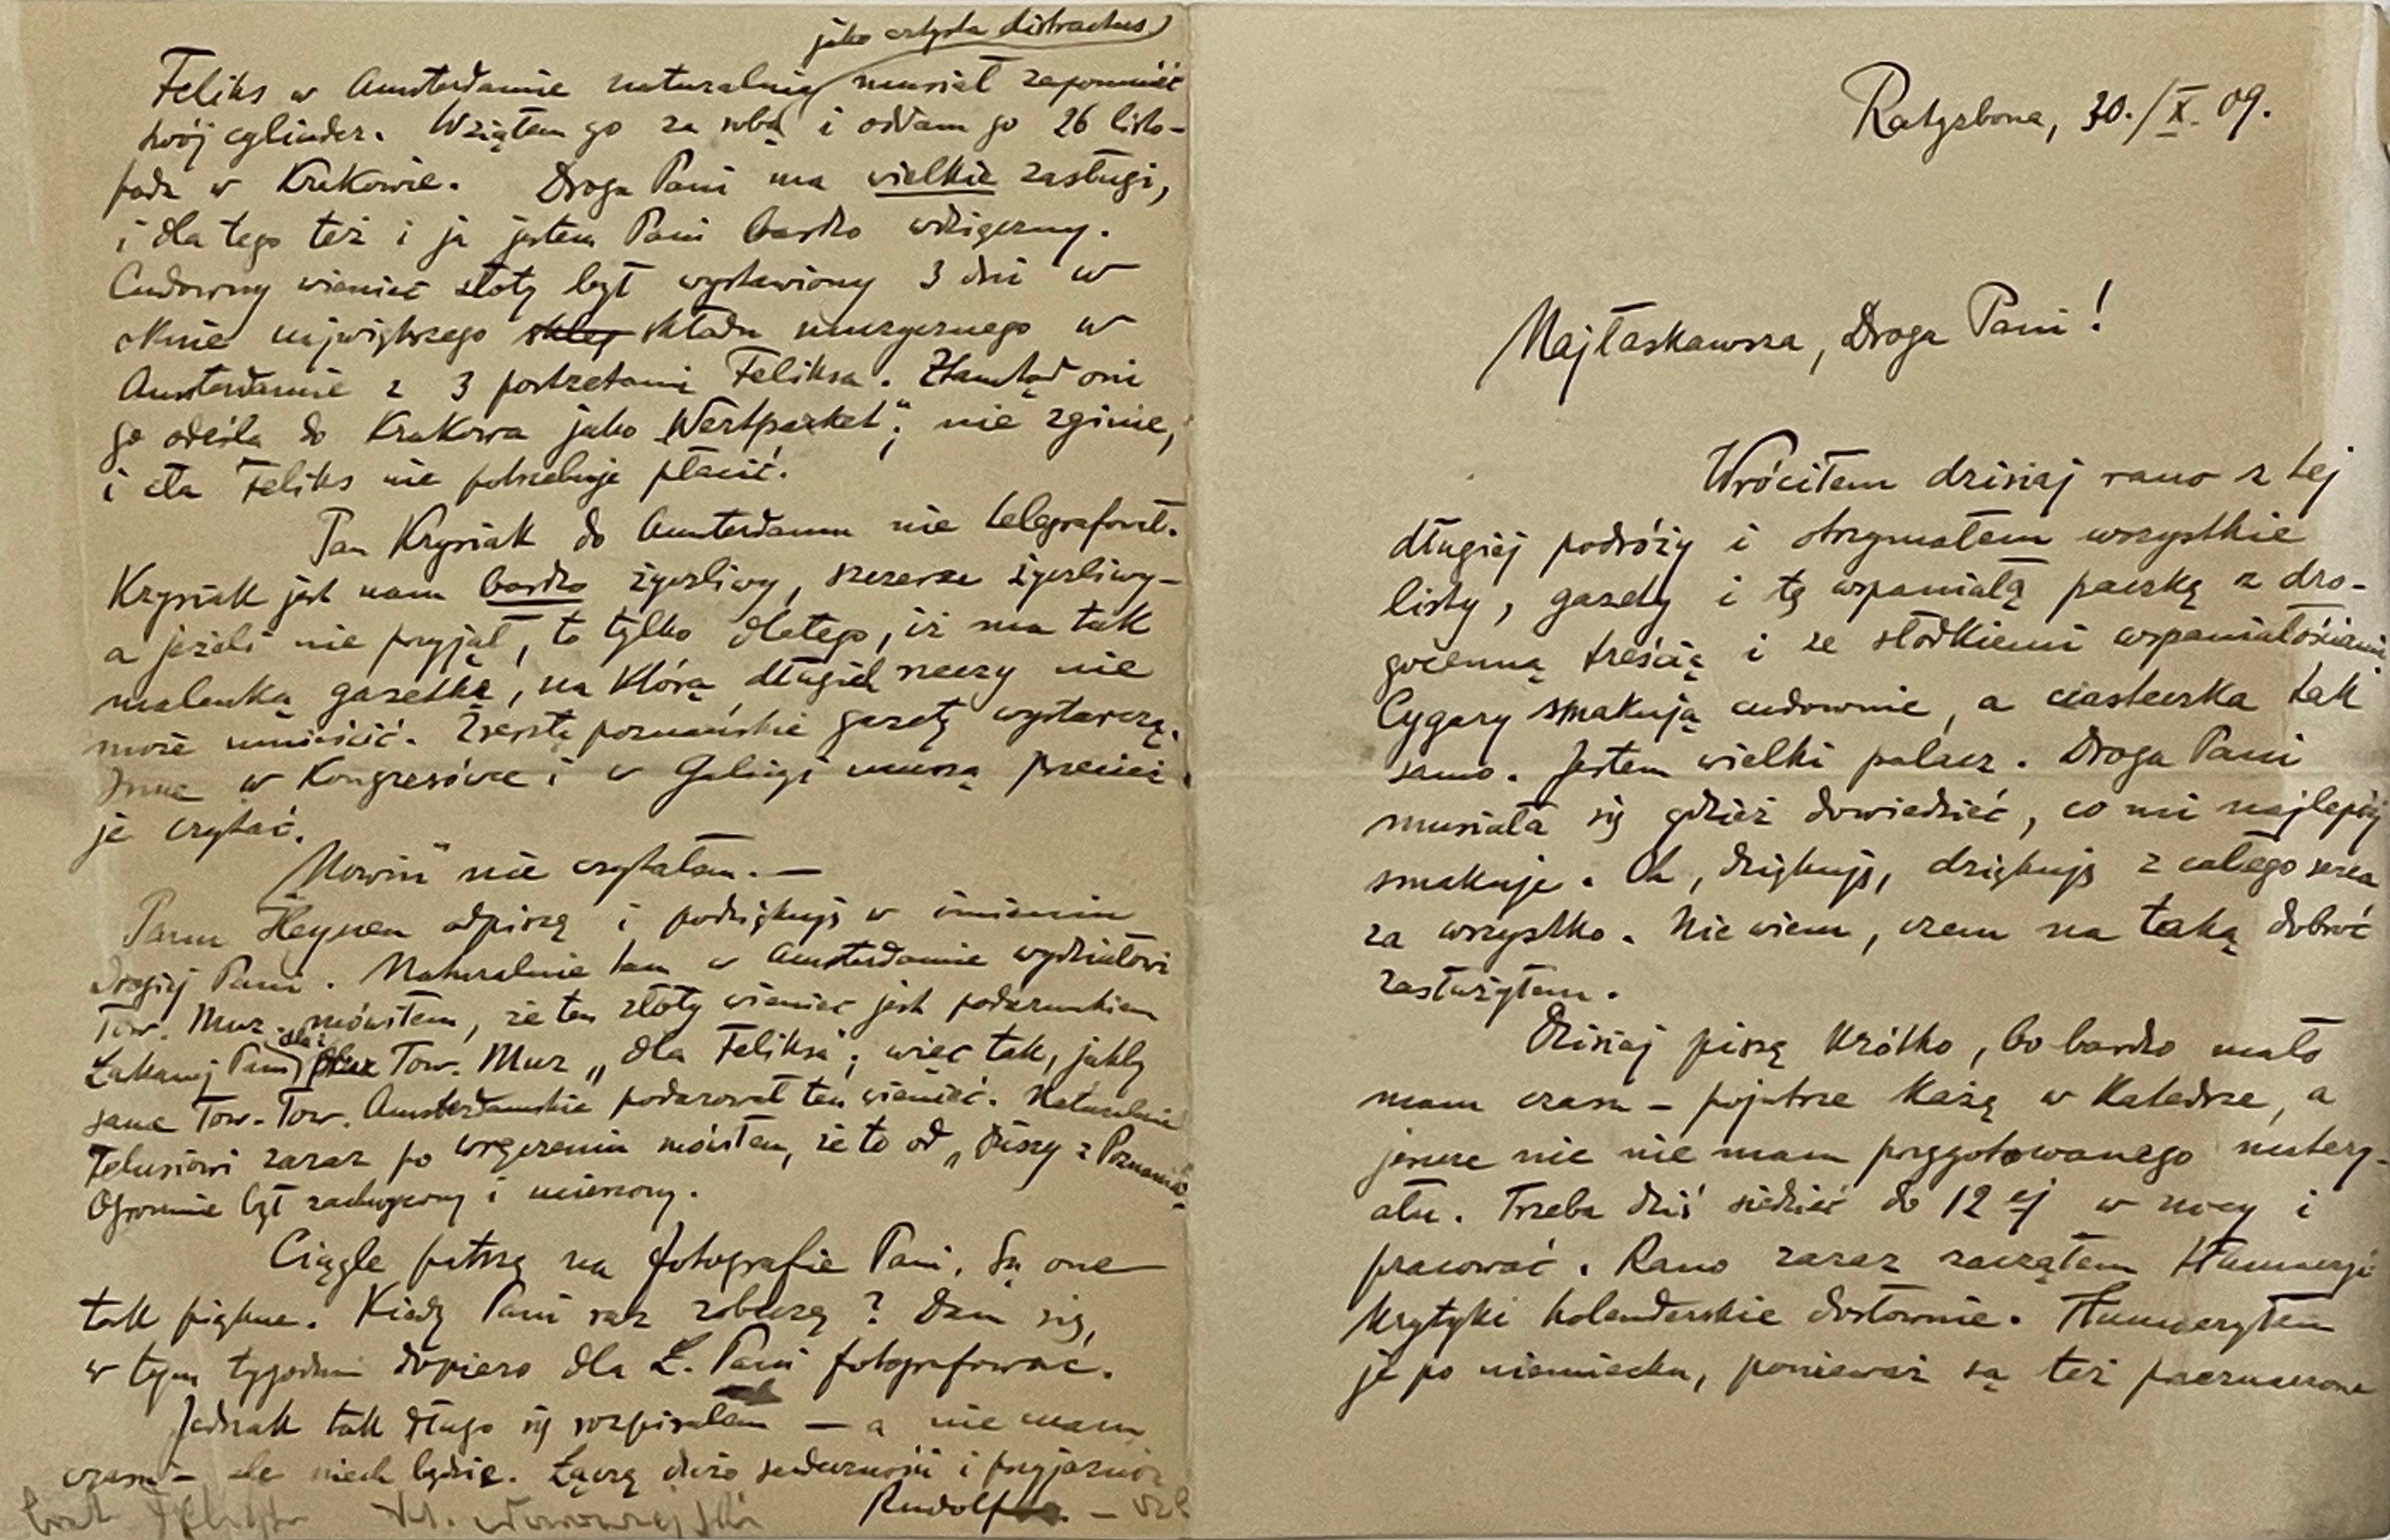 Ratysbona, 30./X. 09.
Najłaskawsza, Droga Pani!
Wróciłem dzisiaj rano z tej
długiej podróży i otrzymałem wszystkie
listy, gazety i tę wspaniałą paczkę z dro-
gocenną treścią i ze słodkiemi wspaniałościami.
Cygary smakują cudownie, a ciasteczka tak
samo. Jestem wielki palacz. Droga Pani
musiała się gdzieś dowiedzieć, co mi najlepiej
smakuje. Oh, dziękuję, dziękuję z całego serca
za wszystko. Nie wiem, czem na taką dobroć
zasłużyłem.
Dzisiaj piszę krótko, bo bardzo mało
mam czasu – pojutrze każę w Katedrze, a
jeszcze nic nie mam przygotowanego matery-
ału. Trzeba dziś siedzieć do 12 ej w nocy i
pracować. Rano zaraz zacząłem tłumaczyć
krytyki holenderskie dosłownie. Tłumaczyłem
je po niemiecku, ponieważ są też przeznaczone
jako artysta distractus)
Feliks w Amsterdamie naturalnie musiał zapomnieć
swój cylinder. Wziąłem go za sobą i oddam go 26 listo-
pada w Krakowie. Droga Pani ma wielkie zasługi,
i dla tego też i ja jestem Pani bardzo wdzięczny.
Cudowny wieniec złoty był wystawiony 3 dni w
oknie największego sklep składu muzycznego w
Amsterdamie z 3 portretami Feliksa. Ztamtąd oni
go odeślą do Krakowa jako „Wertpacket“; nie zginie,
i cła Feliks nie potrzebuje płacić.
Pan Krysiak do Amsterdamu nie telegrafował.
Krysiak jest nam bardzo życzliwy, szczerze życzliwy –
a jeżeli nie przyjął, to tylko dlatego, iż ma tak
malenką gazetkę, na którą długich rzeczy nie
może umieścić. Zresztą poznańskie gazety wystarczą.
Inne w Kongresówce i w Galicyi muszą przecież
je czytać.
„Nowin“ nie czytałem. —
Panu Heynen odpiszę i podziękuję w imieniu
drogiej Pani. Naturalnie tam w Amsterdamie wydziałowi
Tow. Muz. mówiłem, że ten złoty wieniec jest podarunkiem
Łaskawej Pani dla Tow. Muz „dla Feliksa“; więc tak, jakby
same Tow. Tow. Amsterdamskie podarował ten wieniec. Naturalnie
Felusiowi zaraz po wręczeniu mówiłem, że to od „Duszy z Poznania“.
Ogromnie był zachwycony i ucieszony.
Ciągle patrzę na fotografie Pani. Są one
tak piękne. Kiedy Pani raz zobaczę? Dam się,
w tym tygodniu dopiero dla Ł. Pani fotografować.
Jednak tak długo się rozpisałem — a nie mam
czasu – ale niech będzie. Łączę dużo serdeczności i przyjaźni
Rudolf
brat Feliksa